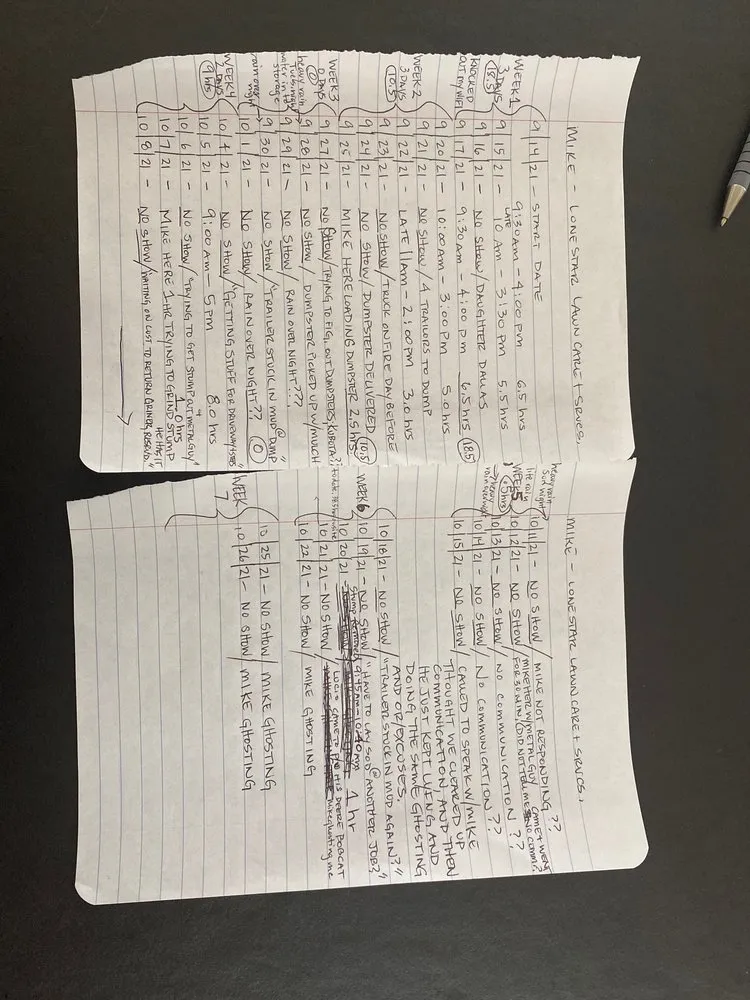 MIKE - LONESTAR LAWN CARE + SRVCS.
9/14/21 - START DATE
9:30AM - 4:00 PM 6.5 hrs
WEEK 1
3 DAYS
18.5
9/15/21 - LATE 10 AM - 3:30 PM 5.5 hrs
9/16/21 - NO SHOW/DAUGHTER DALLAS
KNOCKED OUT MY WIFI
9/17/21 - 9:30 AM - 4:00 PM 6.5 hrs 18.5
9/20/21 - 10:00 AM - 3:00 PM 5.0 hrs
9/21/21 - NO SHOW/4 TRAILORS TO DUMP
WEEK 2
3 DAYS
10.5
9/22/21 - LATE 11 AM - 2:00 PM 3.0 hrs
9/23/21 - NO SHOW/TRUCK ON FIRE DAY BEFORE
9/24/21 - NO SHOW/DUMPSTER DELIVERED
9/25/21 - MIKE HERE LOADING DUMPSTER 2.5 hrs 10.5
WEEK 3
0 DAYS
0
9/27/21 - NO SHOW/TRYING TO FIG. OUT DUMPSTERS, KUBOTA?
heavy rain Tues. night
water into storage
9/28/21 - NO SHOW/DUMPSTER PICKED UP W/MULCH
9/29/21 - NO SHOW/RAIN OVER NIGHT???
9/30/21 - NO SHOW/"TRAILER STUCK IN MUD @ DUMP"
rain over night
10/1/21 - NO SHOW/RAIN OVER NIGHT?? 0
WEEK 4
2 DAYS
9 hrs
10/4/21 - NO SHOW/"GETTING STUFF FOR DRIVEWAY/STEPS"
10/5/21 - 9:00 AM - 5 PM 8.0 hrs
10/6/21 - NO SHOW/"TRYING TO GET STUMP OUT + METAL GUY"
1.0 hrs
10/7/21 - MIKE HERE 1 HR TRYING TO GRIND STUMP
HE HAS IT
10/8/21 - NO SHOW/"WAITING ON CUST TO RETURN GRINDER, RESCUE"
MIKE - LONESTAR LAWN CARE + SRVCS.
heavy rain Sun night
10/11/21 - NO SHOW/MIKE NOT RESPONDING??
lite rain
WEEK 5
.5 hrs
10/12/21 - NO SHOW/MIKE HER W/METAL GUY CAME + WENT
FOR 30 MIN, (DID NOT TELL ME NO COMM)?
heavy rain over night
10/13/21 - NO SHOW/NO COMMUNICATION??
10/14/21 - NO SHOW/NO COMMUNICATION??
10/15/21 - NO SHOW/CALLED TO SPEAK W/MIKE
THOUGHT WE CLEARED UP
COMMUNICATION, AND THEN
HE JUST KEPT LYING AND
DOING THE SAME GHOSTING
AND OR/EXCUSES.
10/18/21 - NO SHOW/"TRAILER STUCK IN MUD AGAIN?"
WEEK 6
10/19/21 - NO SHOW/"HAVE TO LAY SOD @ ANOTHER JOB?"
Stump Removed 9:45AM - 10:40AM 1 hr
10/20/21
LUCIO CAME TO P/U HIS DEERE BOBCAT
10/21/21 - NO SHOW/ mike ghosting me
10/22/21 - NO SHOW/MIKE GHOSTING
WEEK 7
10/25/21 - NO SHOW/MIKE GHOSTING
10/26/21 - NO SHOW/MIKE GHOSTING